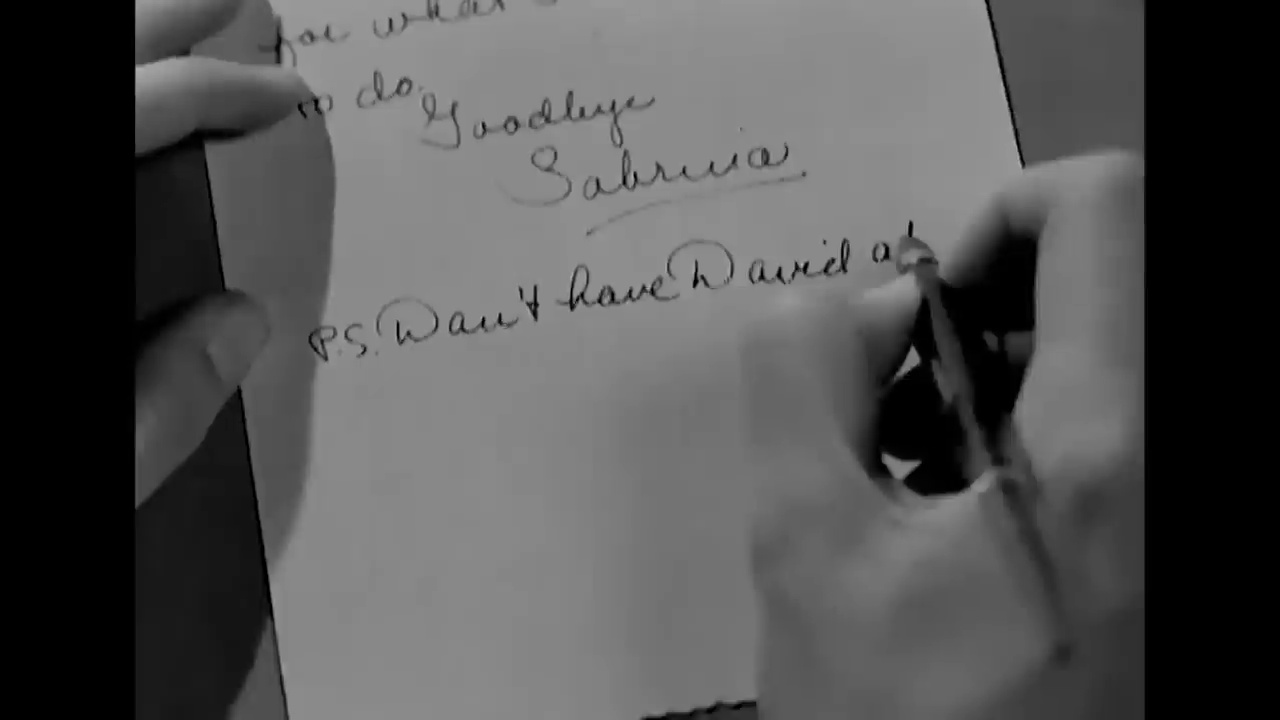 for what
to do.
Goodbye
Sabrina
P.S. Don't have David at